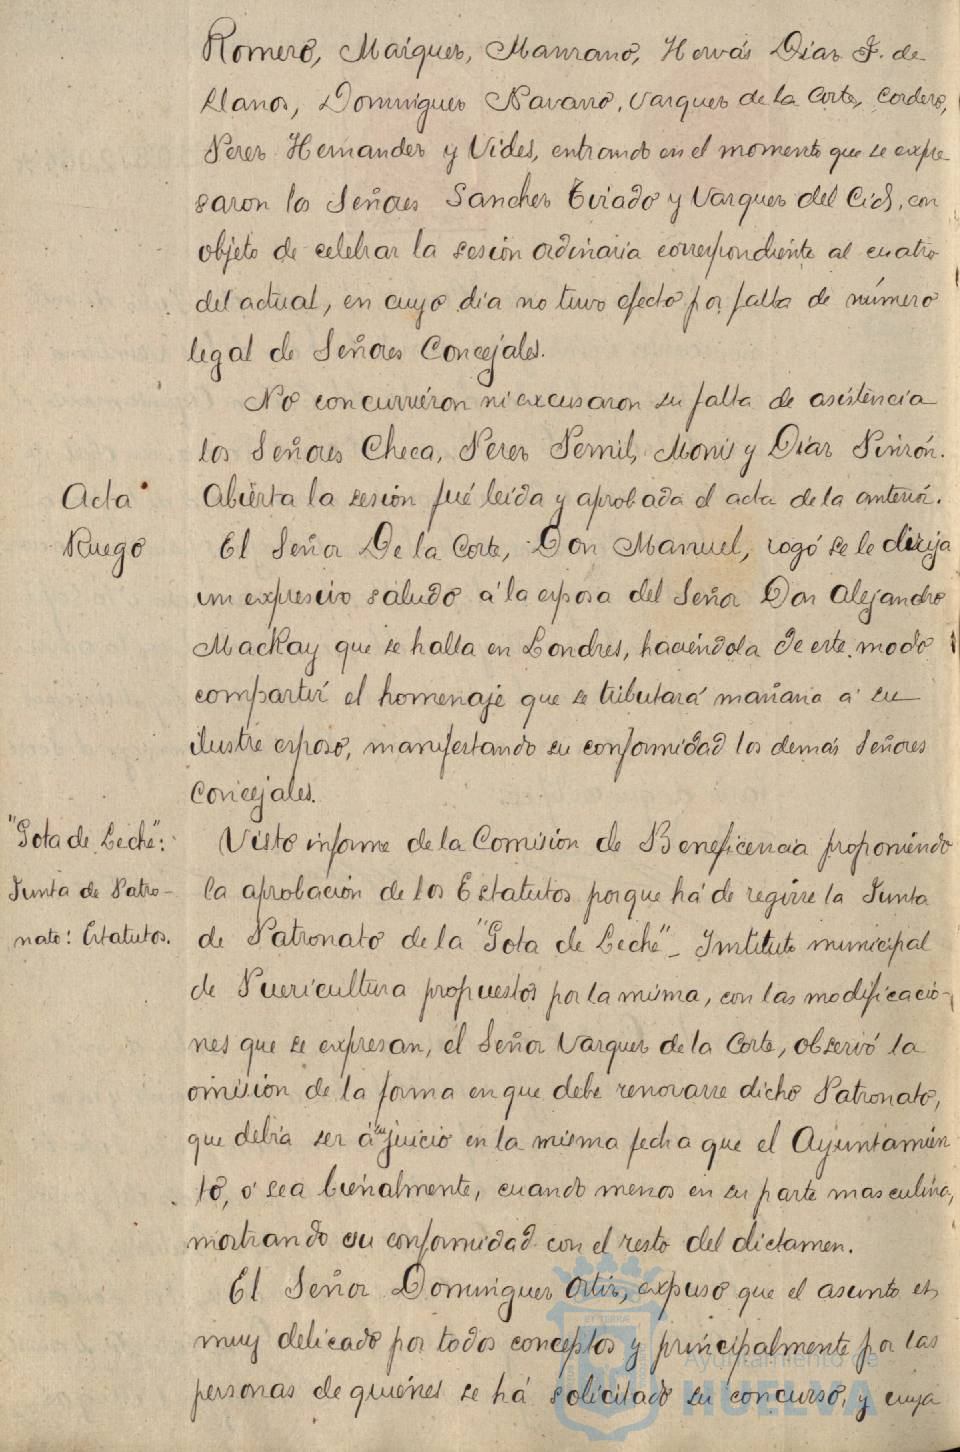 Romero, Maiquez, Manzano, Hervás Diaz F. de
Llanos, Dominguez Navarro, Vazquez de la Corte, Cordero,
Perez Hernandez y Vides, entrando en el momento que se expre
saron los Señores Sanchez Tirado y Vazquez del Cid, con
objeto de celebrar la sesión ordinaria correspondiente al cuatro
del actual, en cuyo dia no tuvo efecto por falta de número
legal de Señores Concejales.
No concurrieron ni excusaron su falta de asistencia
los Señores Checa, Perez Pernil, Monis y Diaz Pinzón.
Acta
Abierta la sesión fué leida y aprobada el acta de la anterior.
Ruego
El Señor De la Corte, Don Manuel, rogó se le dirija
un expresivo saludo á la esposa del Señor Don Alejandro
MacKay que se halla en Londres, haciéndola de este modo
compartir el homenaje que se tributará mañana á su
ilustre esposo, manifestando su conformidad los demás Señores
Concejales.
"Gota de Leche":
Junta de Patro-
nato: Estatutos.
Visto informe de la Comisión de Beneficencia proponiendo
la aprobación de los Estatutos porque há de regirse la Junta
de Patronato de la "Gota de Leche" - Instituto municipal
de Puericultura propuestos por la misma, con las modificacio-
nes que se expresan, el Señor Vazquez de la Corte, observó la
omisión de la forma en que debe renovarse dicho Patronato,
que debía ser á su juicio en la misma fecha que el Ayuntamien
to, ó sea bienalmente, cuando menos en su parte masculina,
mostrando su conformidad con el resto del dictamen.
El Señor Dominguez Ortiz, expuso que el asunto es
muy delicado por todos conceptos y principalmente por las
personas de quienes se há solicitado su concurso, y cuya
Ayuntamiento de
HUELVA